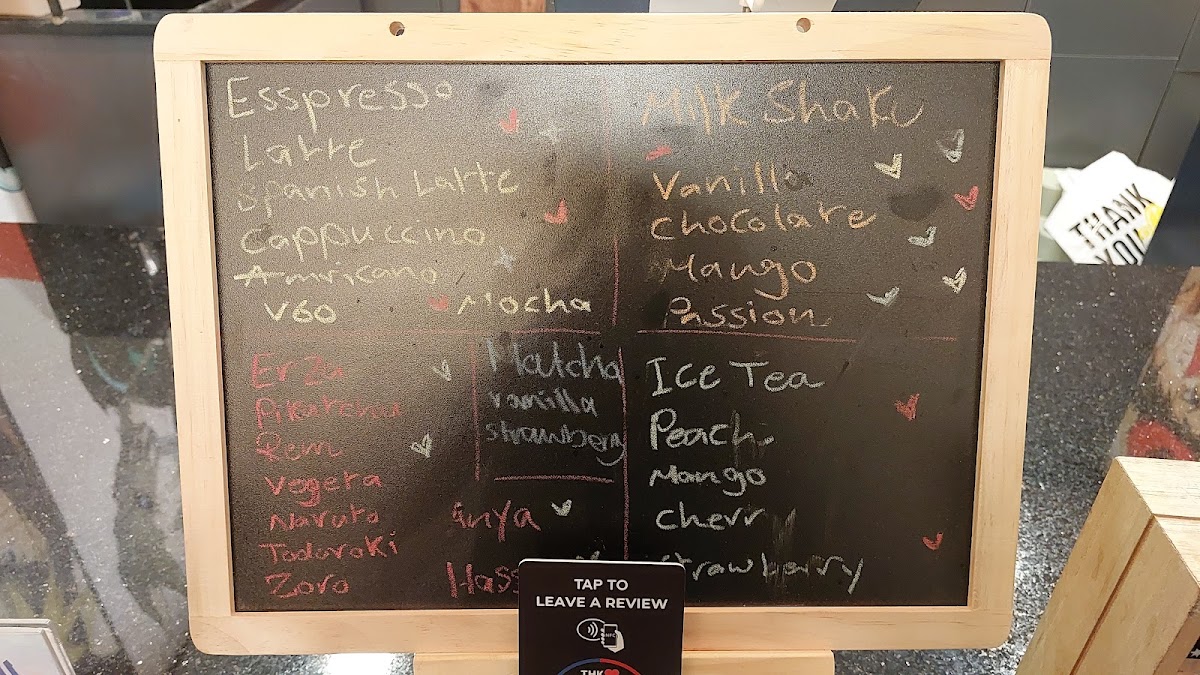 Esspresso
Latte
Spanish Latte
Cappuccino
Amricano
V60
Mocha
Milk Shaku
Vanilla
Chocolate
Mango
Passion
Erza
Rem
Vegeta
Naruto
Todoroki
Zoro
Anya
Hass
Matcha
vanilla
strawberry
Ice Tea
Peach
Mango
Cherry
Strawberry
TAP TO
LEAVE A REVIEW
NFC
THANK
YOU